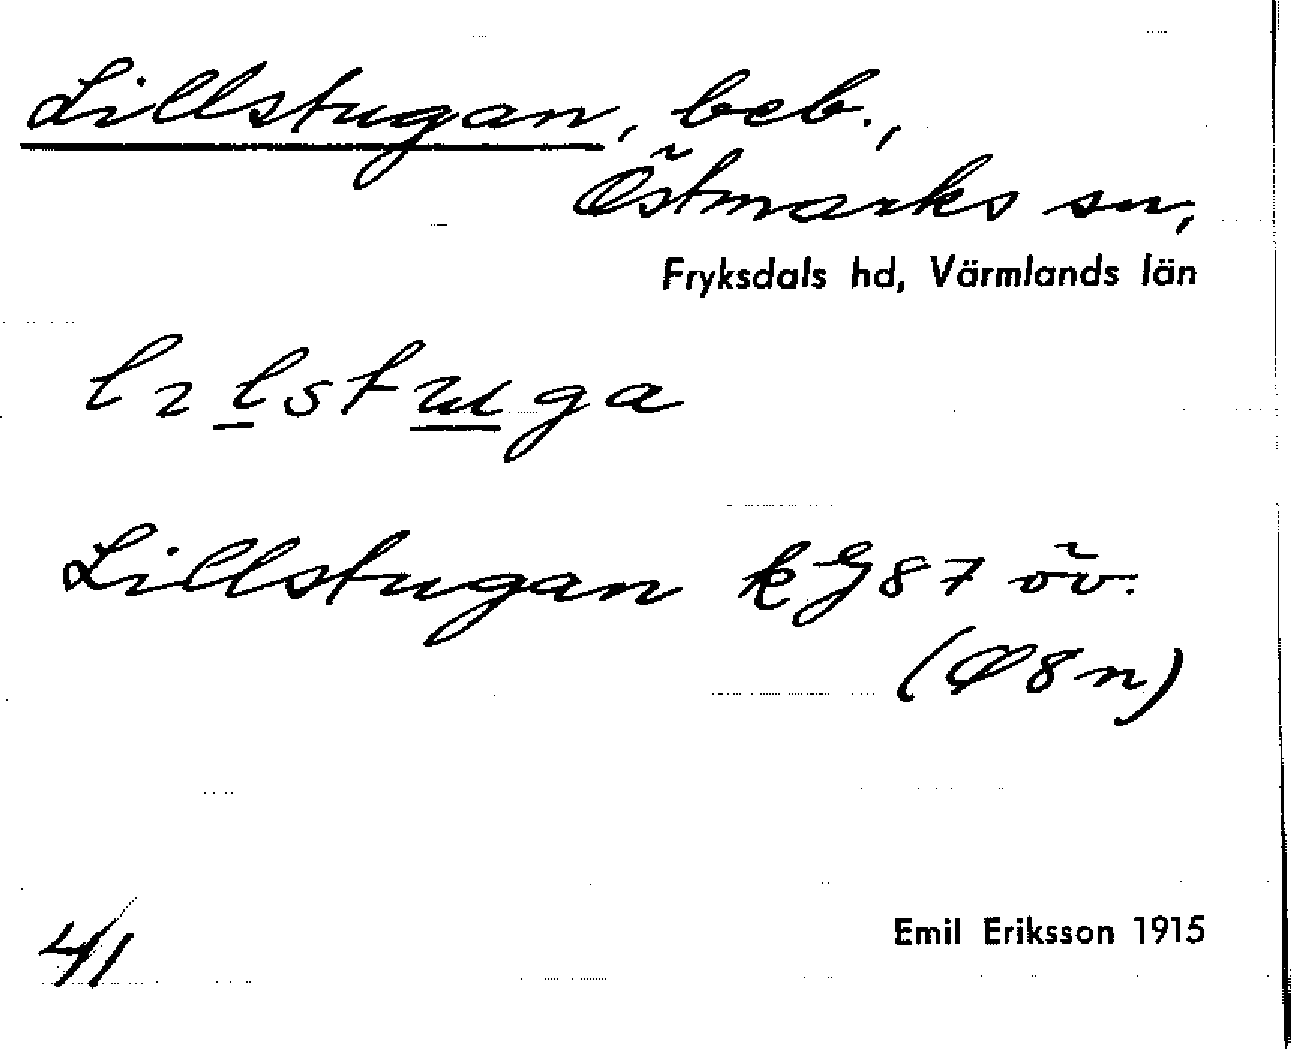 Lillstugan, beb.,
Östmarks sn,
Fryksdals hd, Värmlands län
Lillstugan kG87 öv.
(Ö8n)
Emil Eriksson 1915